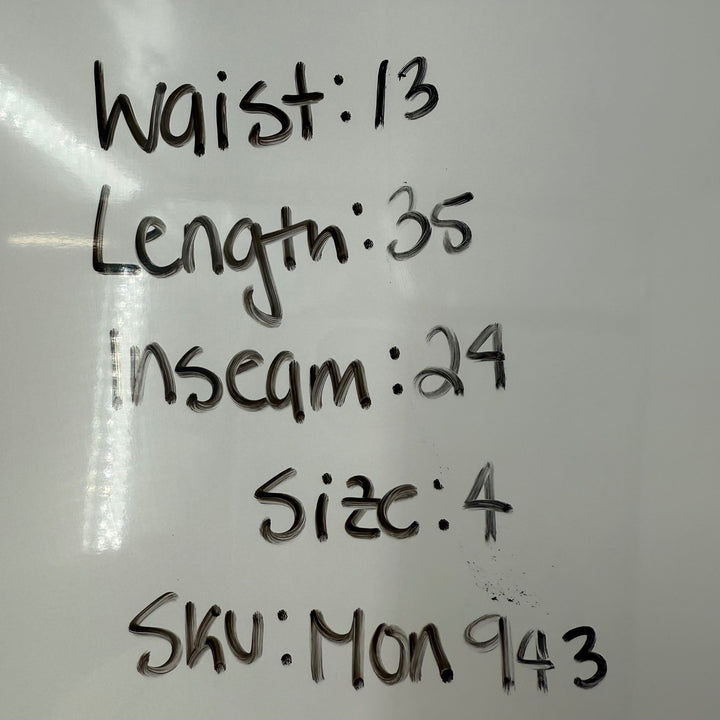 Waist: 13
Length: 35
Inseam: 24
Size: 4
SKU: Mon 943